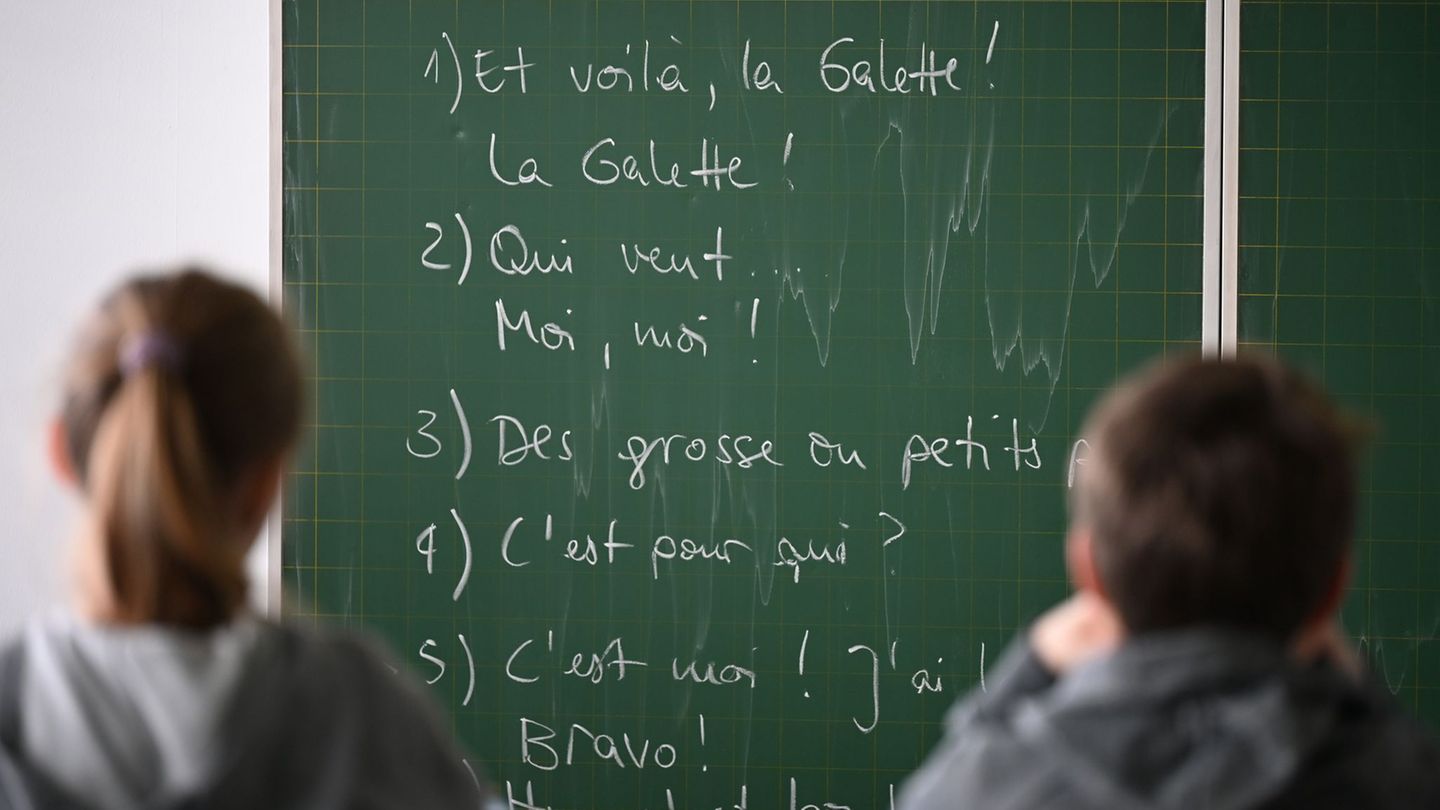 1) Et voilà, la Galette !
La Galette !
2) Qui veut ....
Moi, moi !
3) Des grosse ou petits
4) C'est pour qui ?
5) C'est moi ! J'ai
Bravo !